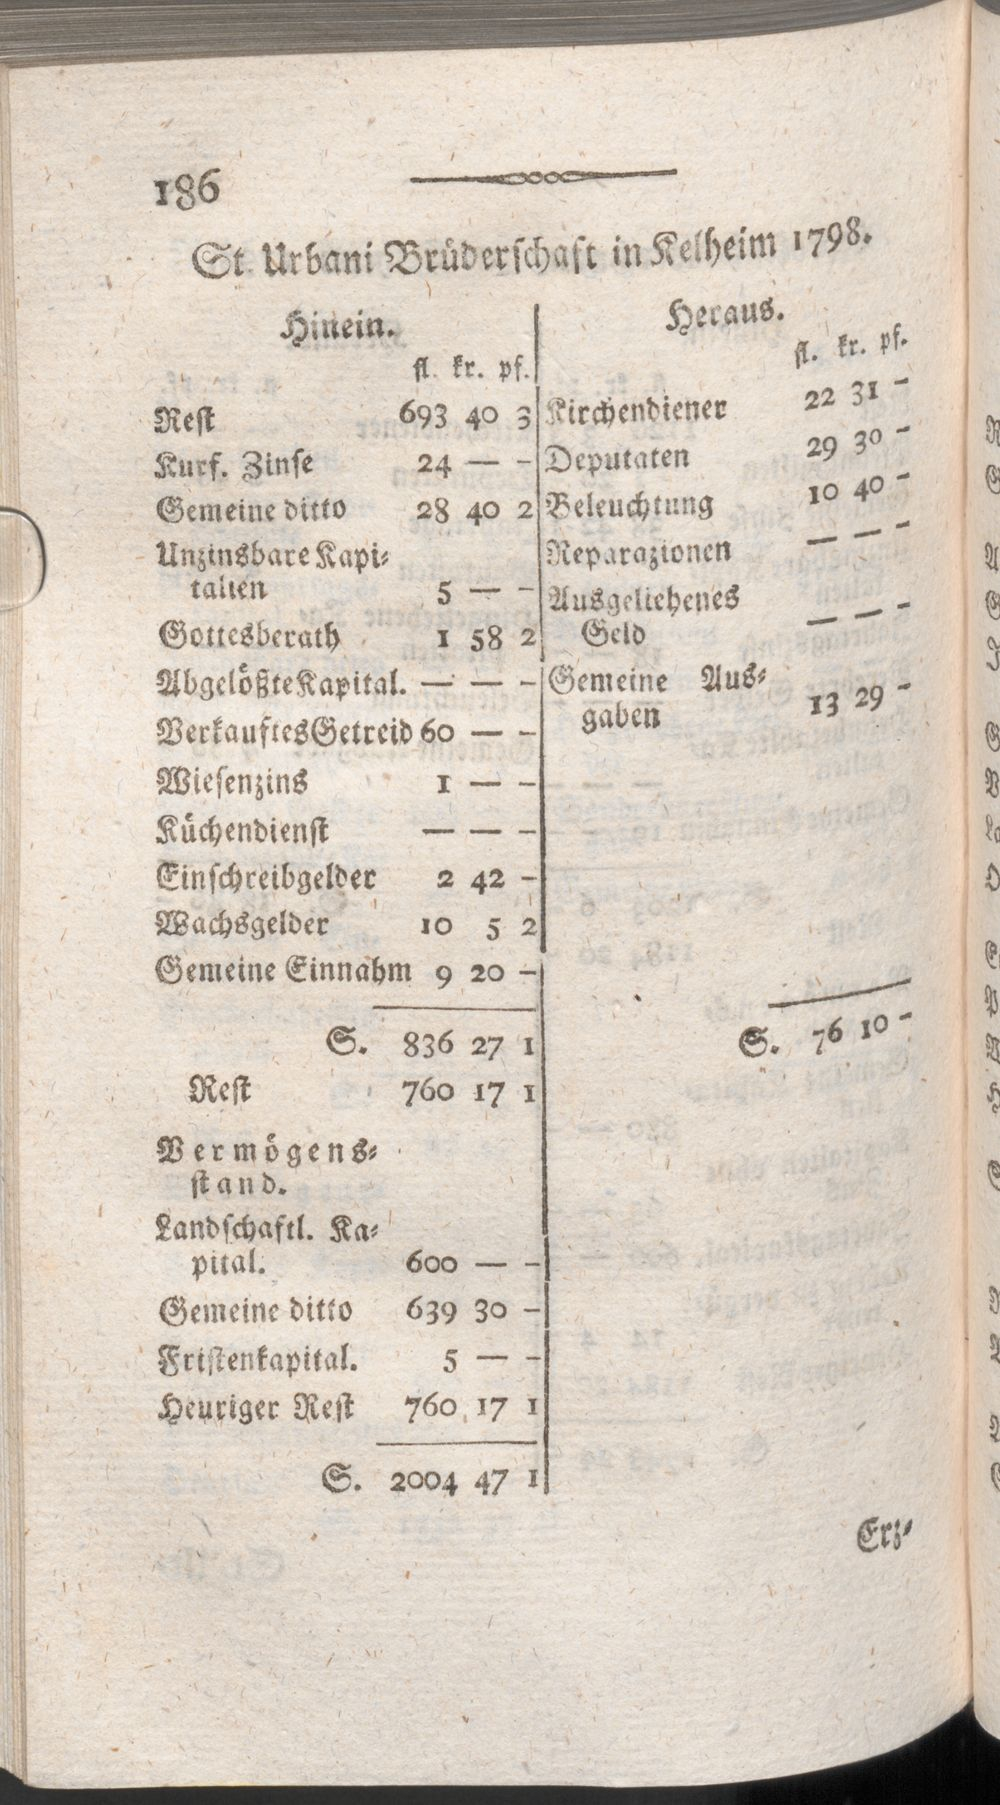 186
St. Urbani Brüderschaft in Kelheim 1798.
Hinein.
fl. kr. pf.
Rest 693 40 3
Kurf. Zinse 24 — –
Gemeine ditto 28 40 2
Unzinsbare Kapi-
talien 5 — –
Gottesberath 1 58 2
Abgelößte Kapital. — — –
Verkauftes Getreid 60 — –
Wiesenzins 1 — –
Küchendienst — — –
Einschreibgelder 2 42 –
Wachsgelder 10 5 2
Gemeine Einnahm 9 20 –
S. 836 27 1
Rest 760 17 1
Vermögens-
stand.
Landschaftl. Ka-
pital. 600 — –
Gemeine ditto 639 30 –
Fristenkapital. 5 — –
Heuriger Rest 760 17 1
S. 2004 47 1
Heraus.
fl. kr. pf.
Kirchendiener 22 31 –
Deputaten 29 30 –
Beleuchtung 10 40 –
Reparazionen — — –
Ausgeliehenes
Geld — — –
Gemeine Aus-
gaben 13 29 –
S. 76 10 –
Erz-